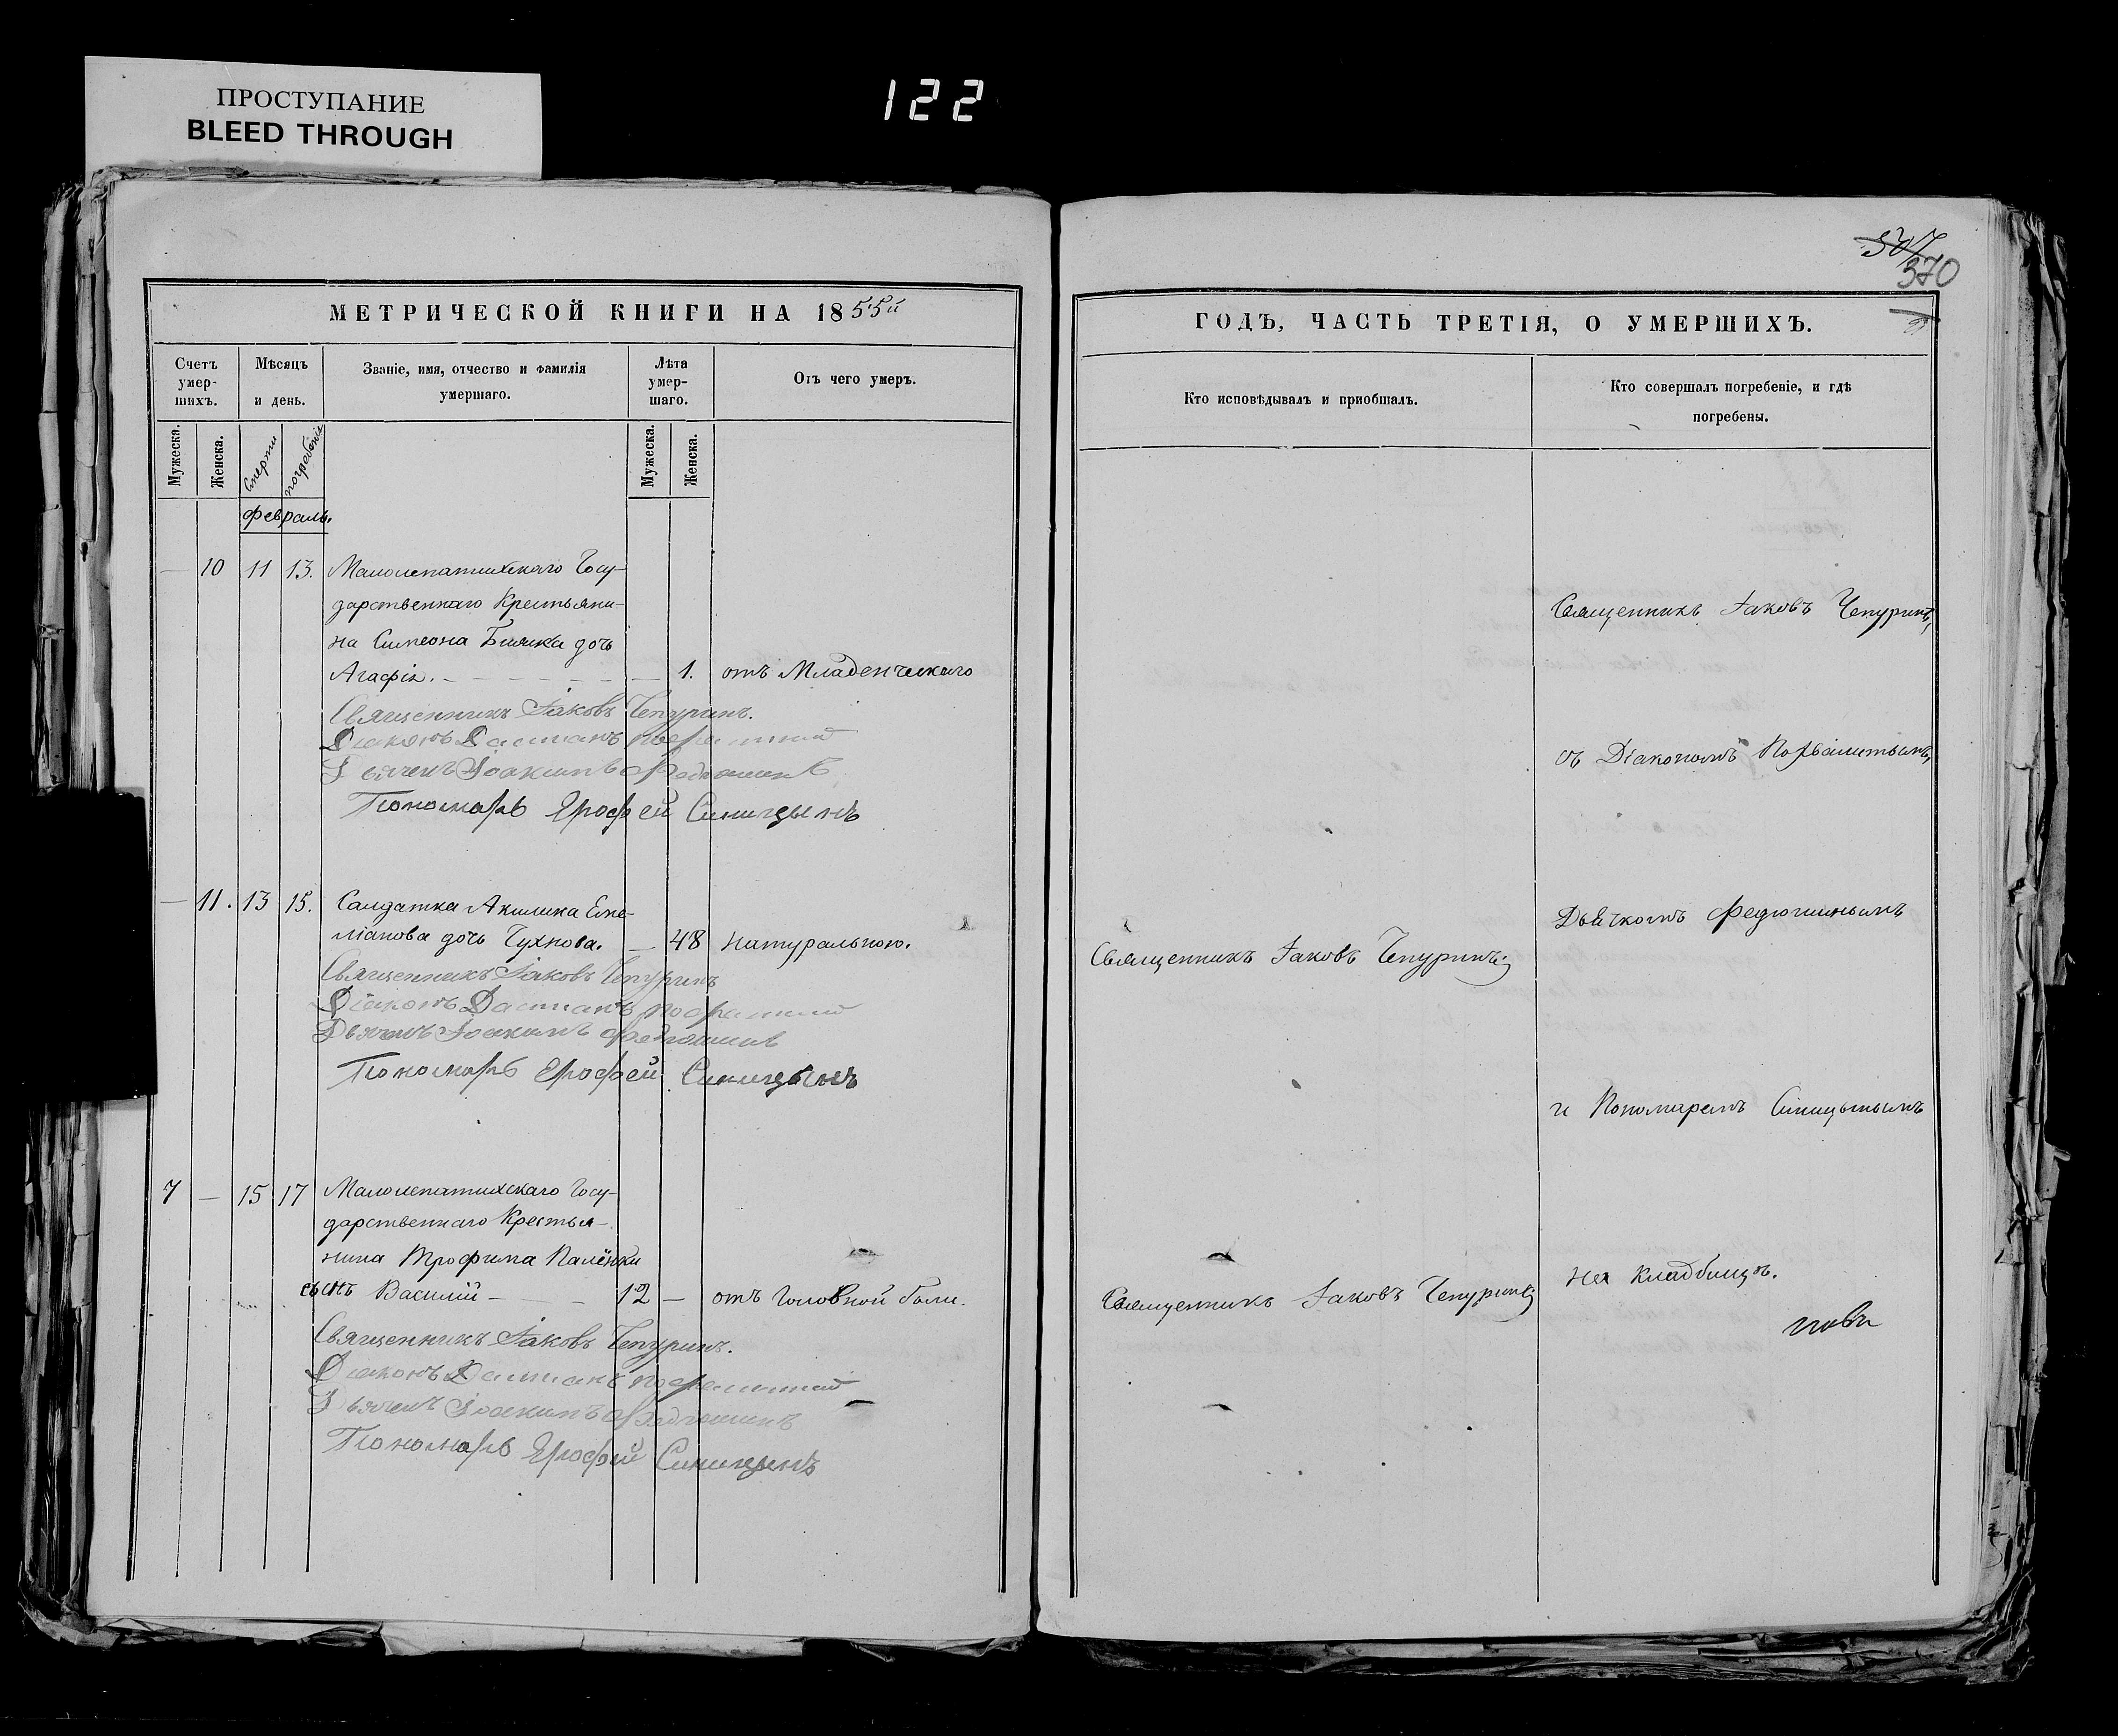 ПРОСТУПАНИЕ
BLEED THROUGH
122
307
370
МЕТРИЧЕСКОЙ КНИГИ НА 1855й
Счетъ умер- шихъ.
Мѣсяцъ и день.
Званіе, имя, отчество и фамилія умершаго.
Лѣта умер- шаго.
Отъ чего умеръ.
Мужеска.
Женска.
Смерти
погребенія
Мужеска.
Женска.
февраль.
— 10 11 13. Малолепатихскаго Госу-
дарственнаго Крестьяни-
на Симеона Бияка дочь
Агафія. — 1. отъ Младенческаго
Священникъ Іаковъ Чепуринъ.
Діаконъ Даміанъ
Дьячекъ Іоакимъ Федюшинъ
Пономарь Ерофей Синицынъ
— 11. 13 15. Салдатка Акилина Еме-
ліанова дочь Чухнова. — 48 натуральною.
Священникъ Іаковъ Чепуринъ
Діаконъ Даміанъ
Дьячекъ Іоакимъ Федюшинъ
Пономарь Ерофей Синицынъ
7 — 15 17 Малолепатихскаго Госу-
дарственнаго Крестья-
нина Трофима Палёнки
сынъ Василій — 12 — отъ Головной боли.
Священникъ Іаковъ Чепуринъ.
Діаконъ Даміанъ
Дьячекъ Іоакимъ Федюшинъ
Пономарь Ерофей Синицынъ
ГОДЪ, ЧАСТЬ ТРЕТІЯ, О УМЕРШИХЪ.
Кто исповѣдывалъ и приобщалъ.
Кто совершалъ погребеніе, и гдѣ
погребены.
Священникъ Іаковъ Чепуринъ,
съ Діакономъ Похвалитымъ,
Дьячкомъ Федюшинымъ
Священникъ Іаковъ Чепуринъ
и Пономаремъ Синицынымъ
на кладбищѣ.
Священникъ Іаковъ Чепуринъ